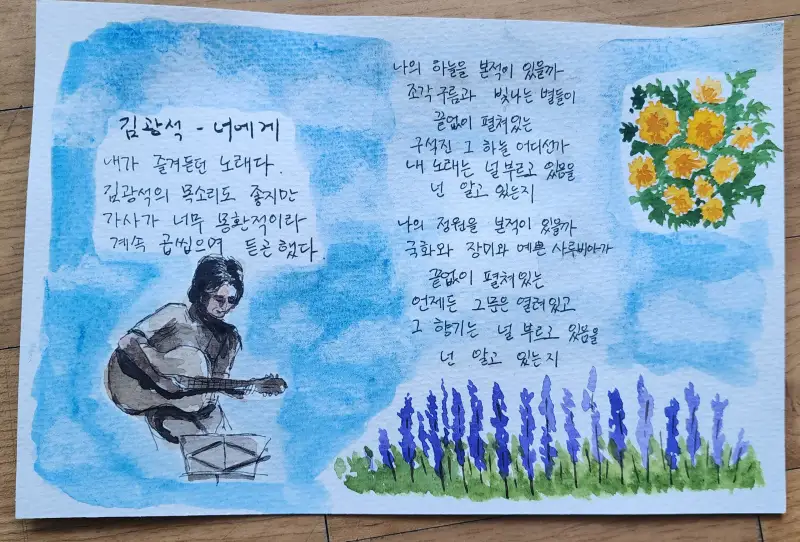 김광석 - 너에게
내가 즐겨듣던 노래다.
김광석의 목소리도 좋지만
가사가 너무 몽환적이라
계속 곱씹으며 듣곤했다.
나의 하늘을 본적이 있을까
조각구름과 빛나는 별들이
끝없이 펼쳐있는
구석진 그 하늘 어디선가
내 노래는 널부르고 있음을
넌 알고 있는지
나의 정원을 본적이 있을까
국화와 장미와 예쁜 사루비아가
끝없이 펼쳐있는
언제든 그문은 열려있고
그 향기는 널 부르고 있음을
넌 알고 있는지